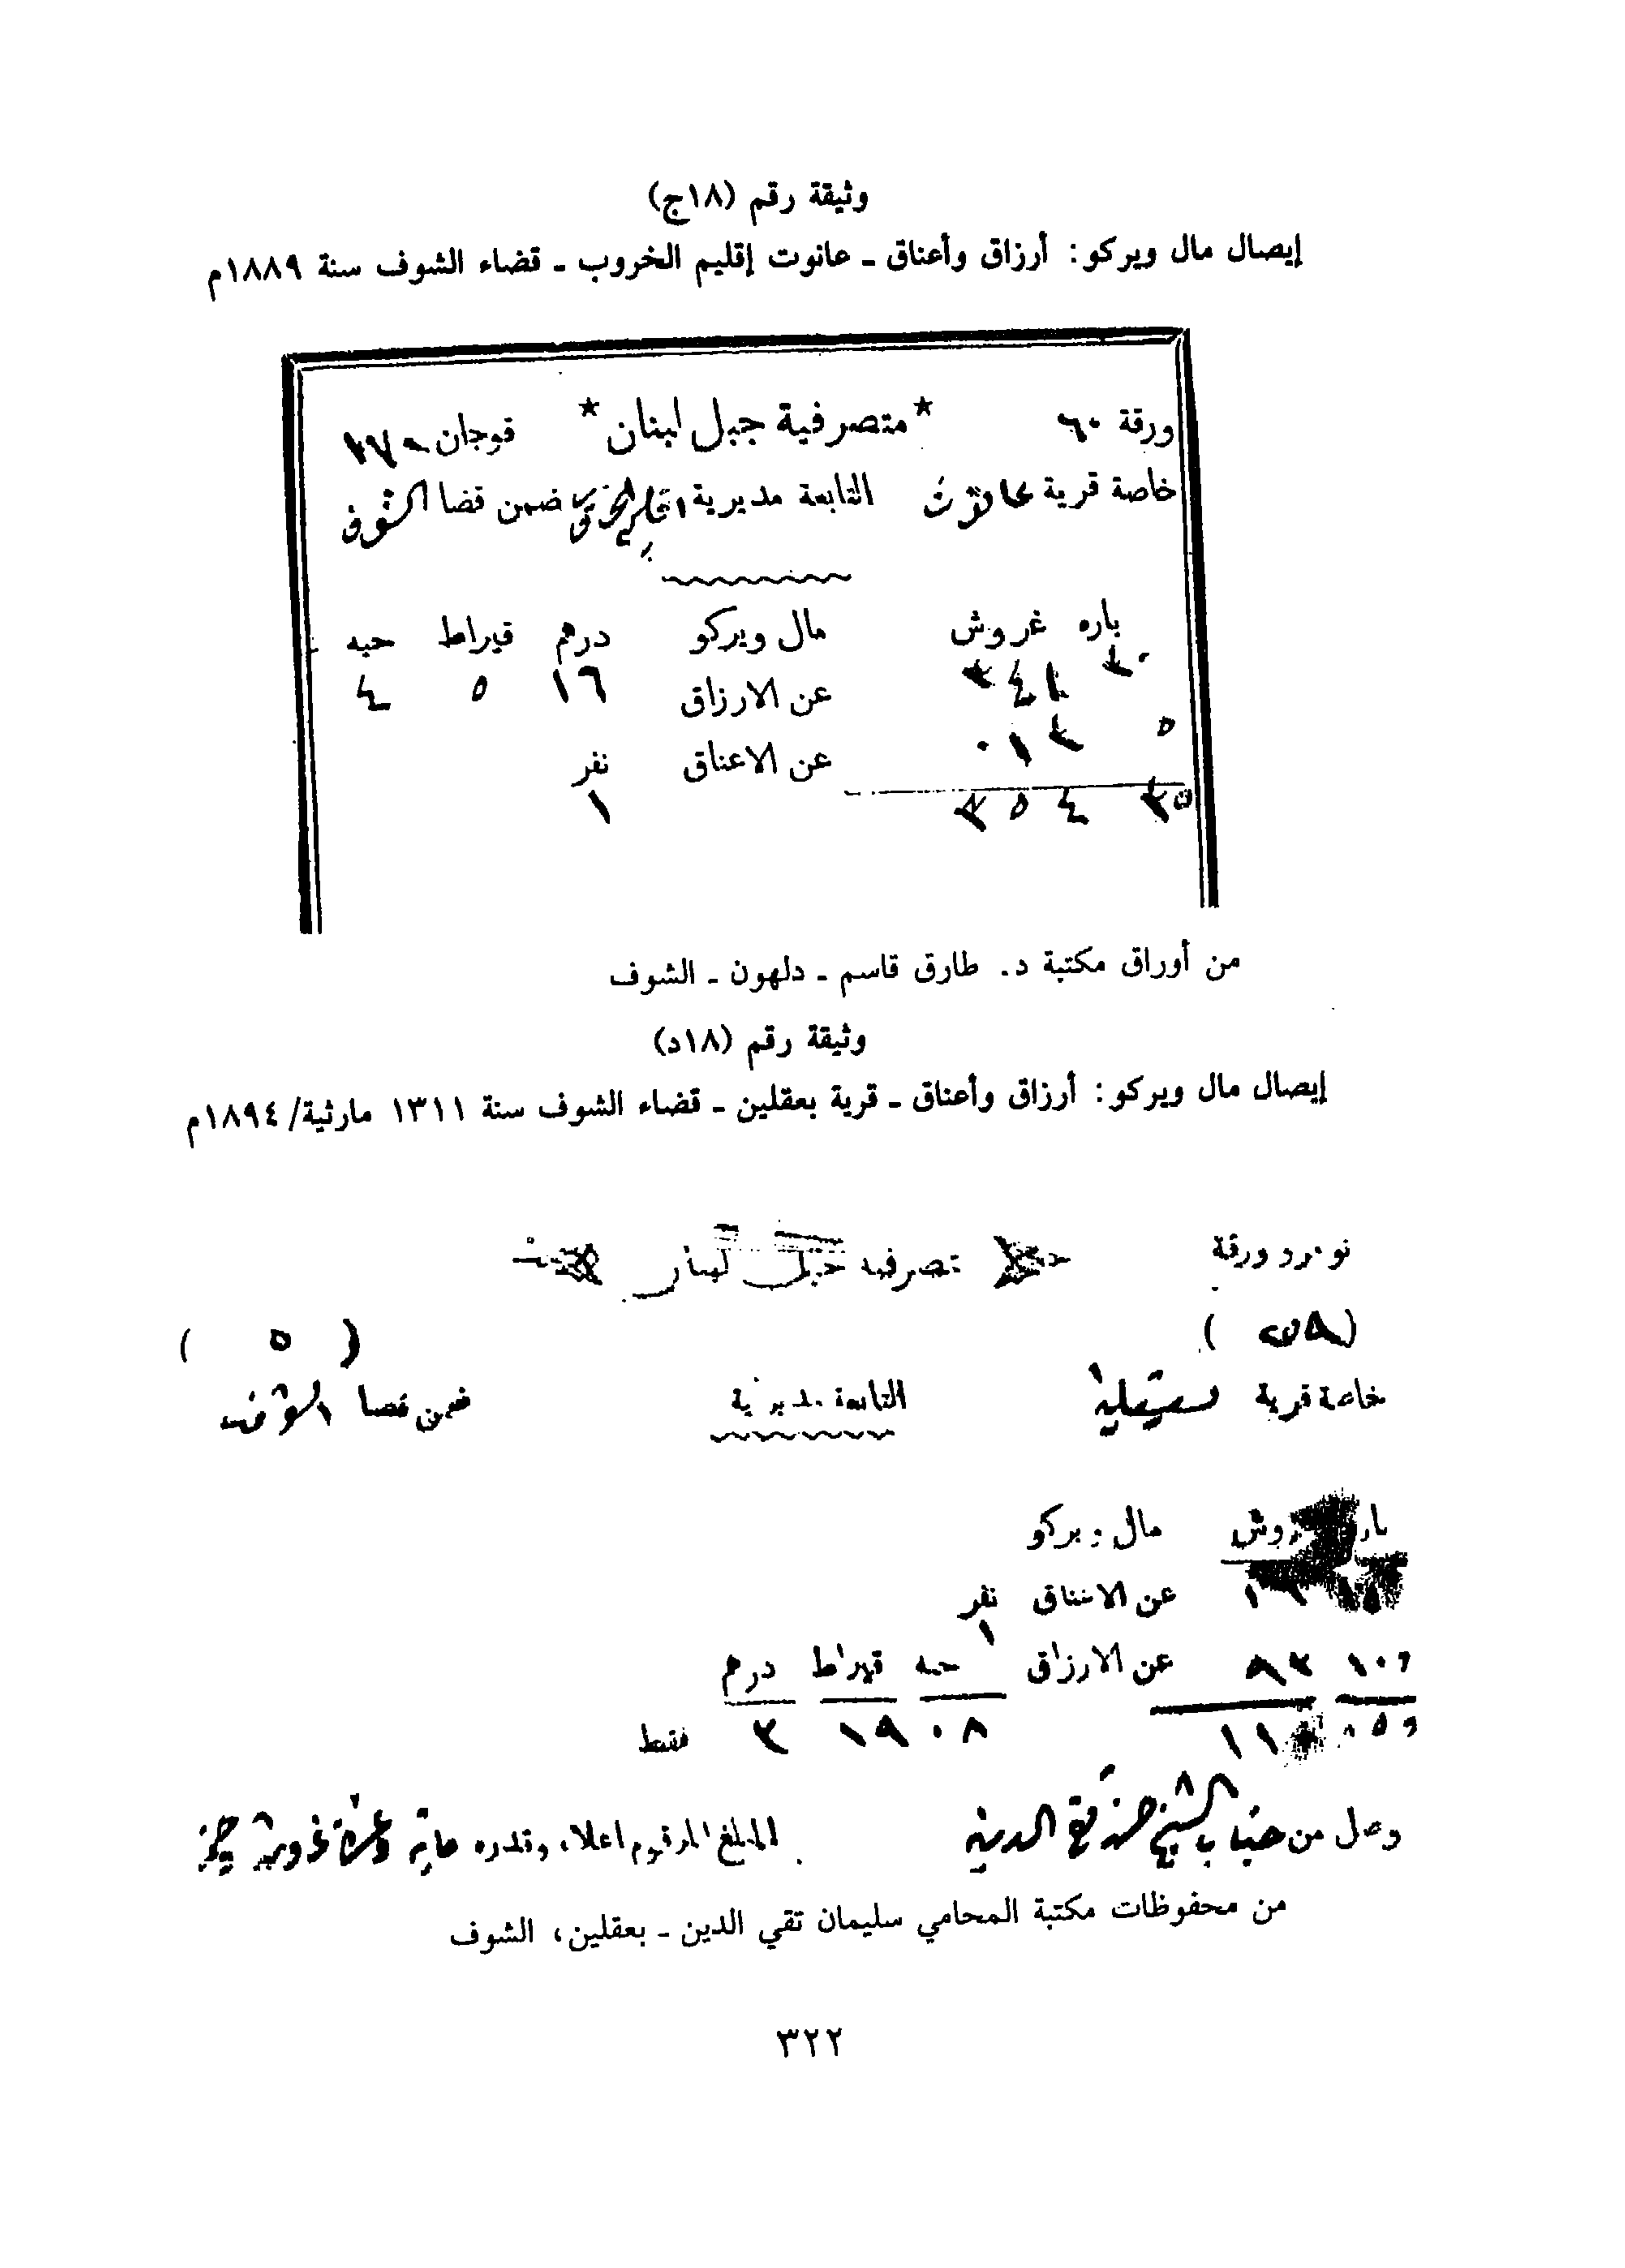 وثيقة رقم (١٨ج)
إيصال مال ويركو: أرزاق وأعناق ـ عانوت إقليم الخروب ـ قضاء الشوف سنة ١٨٨٩م
ورقة ٦٠ *متصرفية جبل لبنان* قوجان
خاصة قرية عانوت التابعة مديرية اقليم الخروب ضمن قضا الشوف
باره غروش مال ويركو درهم قيراط حبه
عن الارزاق ١٦ ٥ ٤
عن الاعناق نفر
١
من أوراق مكتبة د. طارق قاسم ـ دلهون ـ الشوف
وثيقة رقم (١٨د)
إيصال مال ويركو: أرزاق وأعناق ـ قرية بعقلين ـ قضاء الشوف سنة ١٣١١ مارثية/١٨٩٤م
ورقة متصرفية جبل لبنان
( ٥ )
خاصة قرية التابعة مديرية ضمن قضا الشوف
مال ويركو
عن الاعناق نفر
١
عن الارزاق حبه قيراط درهم
٠٨ ١٩ ٣ فقط
وصل من جناب الشيخ حسن تقي الدين المبلغ المرقوم اعلاه وقدره ماية وعشرة غروش
من محفوظات مكتبة المحامي سليمان تقي الدين ـ بعقلين، الشوف
٣٢٢